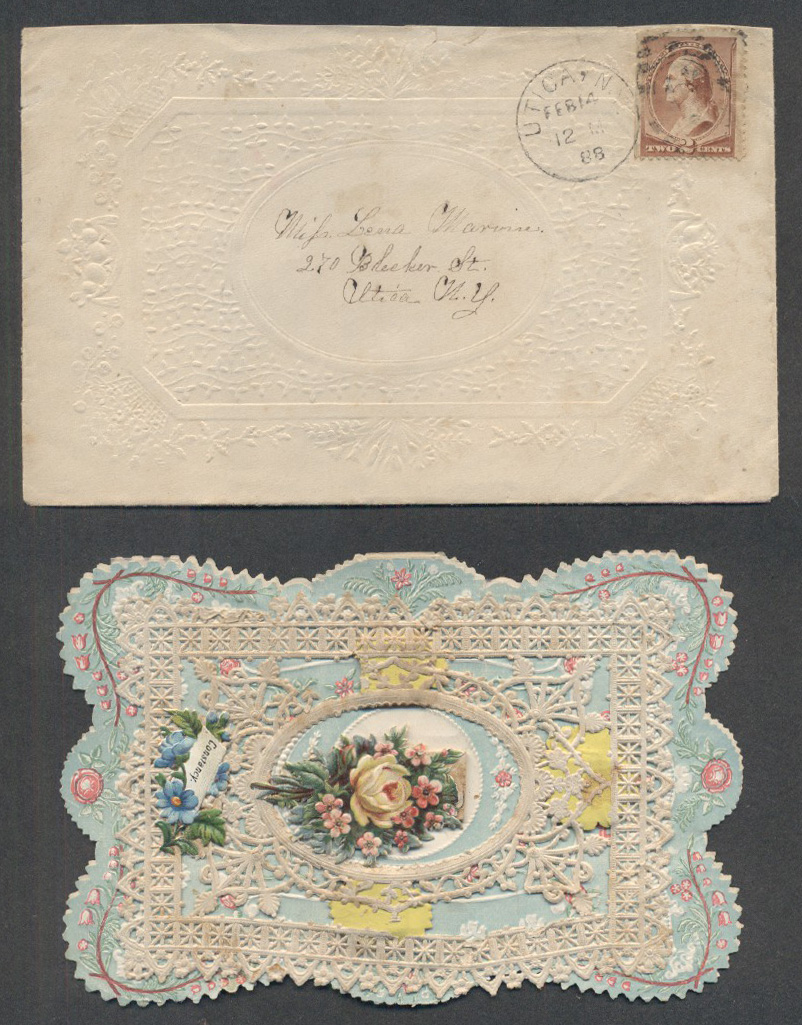 UTICA, N.Y.
FEB 14
12 M
88
TWO 2 CENTS
Miss Lena Marvin.
270 Bleecker St.
Utica N.Y.
Constancy